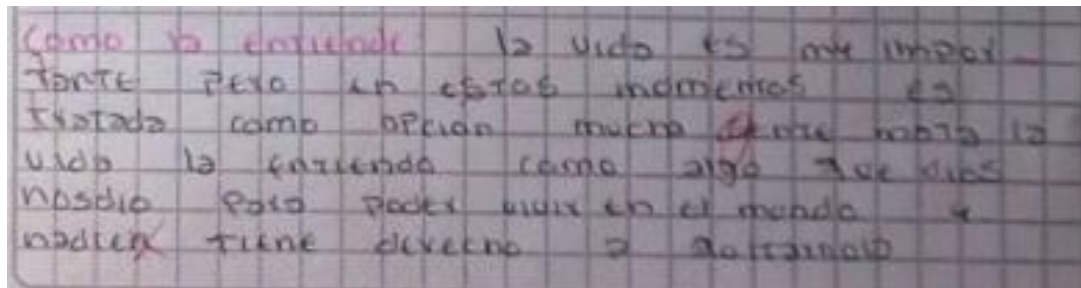 Como la entiende la vida es muy impor_
tante pero en estos momentos es
tratada como opcion mucha gente la
vida la entiendo como algo que dios
nosdio para poder vivir en el mundo y
nadien tiene derecho a